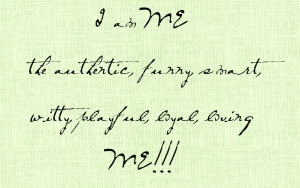 I am ME
the authentic, funny, smart,
witty, playful, loyal, loving
ME!!!